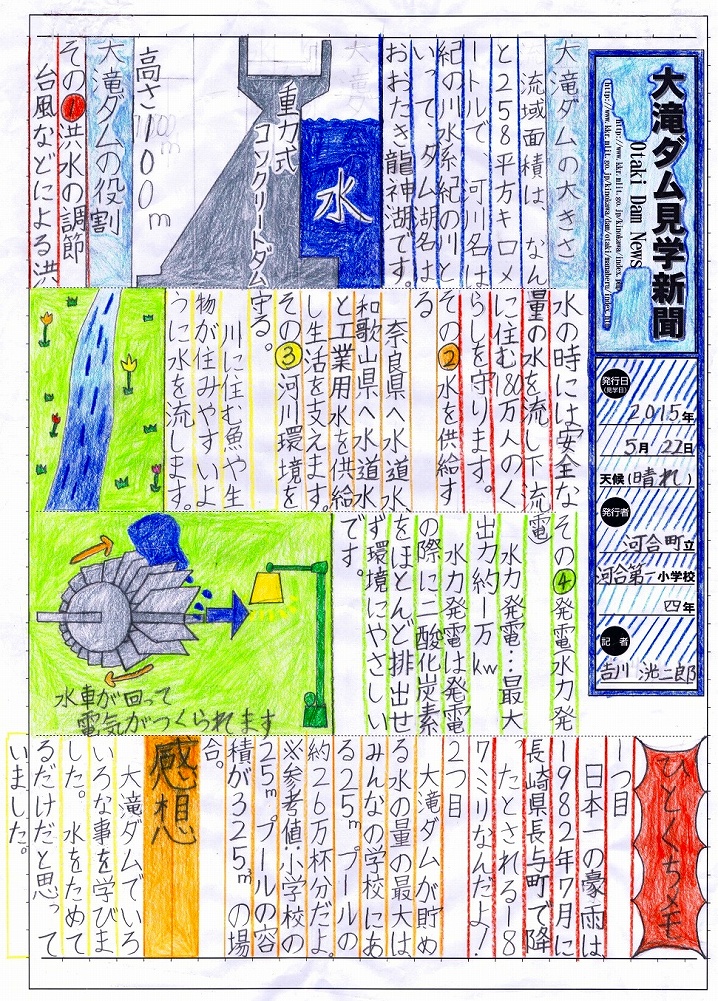 大滝ダム見学新聞
Otaki Dam News
http://www.kkr.mlit.go.jp/kinokawa/index.php
発行日
(見学日)
2015年
5月22日
天候(晴れ)
発行者
河合町立
河合第一小学校
四年
記者
吉川 洸二郎
大滝ダムの大きさ
流域面積は、なん
と258平方キロメ
ートルで、河川名は
紀の川水系紀の川と
いって、ダム湖名は
おおたき龍神湖です。
水
重力式
コンクリートダム
高さ100m
大滝ダムの役割
その1洪水の調節
台風などによる洪
水の時には安全な
量の水を流し下流
に住む180万人のく
らしを守ります。
その2水を供給す
る
奈良県へ水道水、
和歌山県へ水道水
と工業用水を供給
し生活を支えます。
その3河川環境を
守る。
川に住む魚や生
物が住みやすいよ
うに水を流します。
その4発電水力発
電
水力発電…最大
出力約1万kw
水力発電は発電
の際に二酸化炭素
をほとんど排出せ
ず環境にやさしい
です。
水車が回って
電気がつくられます
ひとくちメモ
1つ目
日本一の豪雨は、
1982年7月に
長崎県長与町で降
ったとされる18
7ミリなんだよ!
2つ目
大滝ダムが貯め
る水の量の最大は、
みんなの学校にあ
る25mプールの
約26万杯分だよ。
※参考値:小学校の
25mプールの容
積が325m³の場
合。
感想
大滝ダムでいろ
いろな事を学びま
した。水をためて
るだけだと思って
いました。